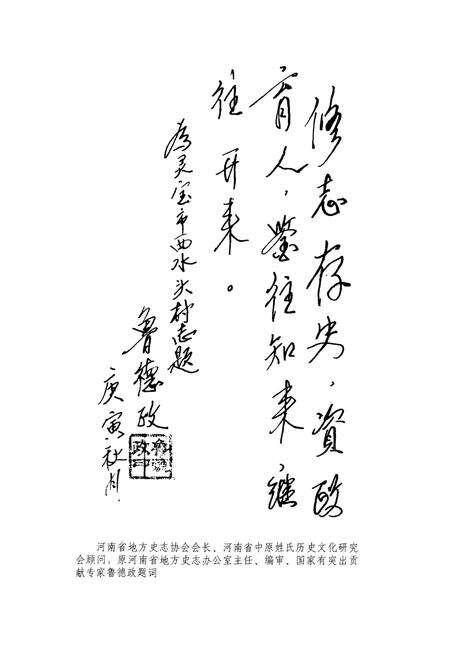 修志存史，资政
育人，鉴往知来，继
往开来。
为灵宝市西水头村志题
鲁德政
庚寅秋月
河南省地方史志协会会长、河南省中原姓氏历史文化研究
会顾问，原河南省地方史志办公室主任、编审、国家有突出贡
献专家鲁德政题词